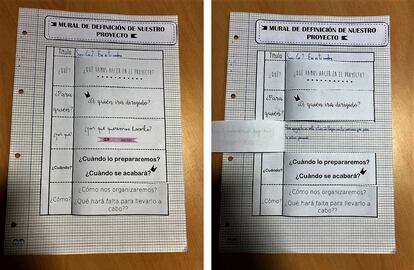 MURAL DE DEFINICIÓN DE NUESTRO
PROYECTO
Título
¿QUÉ?
¿QUÉ VAMOS HACER EN EL PROYECTO?
¿Para
quién?
¿A quién irá dirigido?
¿Por qué?
¿Por qué queremos hacerlo?
¿Cuándo?
¿Cuándo lo prepararemos?
¿Cuándo se acabará?
¿Cómo?
¿Cómo nos organizaremos?
¿Qué hará falta para llevarlo a
cabo??
MURAL DE DEFINICIÓN DE NUESTRO
PROYECTO
Título
¿QUÉ?
¿QUÉ VAMOS HACER EN EL PROYECTO?
¿Para
quién?
¿A quién irá dirigido?
¿Cuándo?
¿Cuándo lo prepararemos?
¿Cuándo se acabará?
¿Cómo?
¿Cómo nos organizaremos?
¿Qué hará falta para llevarlo a
cabo??